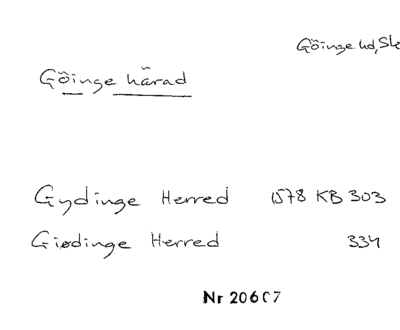 Göinge hd, Sk
Göinge härad
Gydinge Herred 1578 KB 303
Giødinge Herred 334
Nr 20607